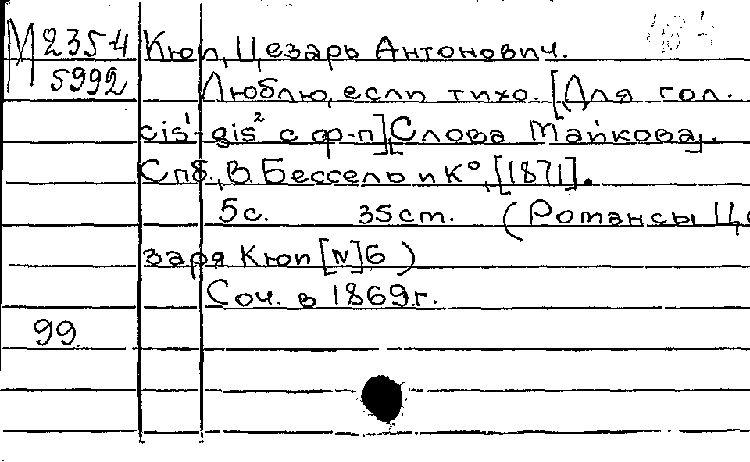 М 2354 Кюи, Цезарь Антонович.
5992 Люблю, если тихо. [Для гол.
cis¹-gis² с ф-п] [Слова Майкова].
Спб., В. Бессель и К°, [1871].
5с. 35см. (Романсы Це
заря Кюи [№] 6 )
Соч. в 1869г.
99